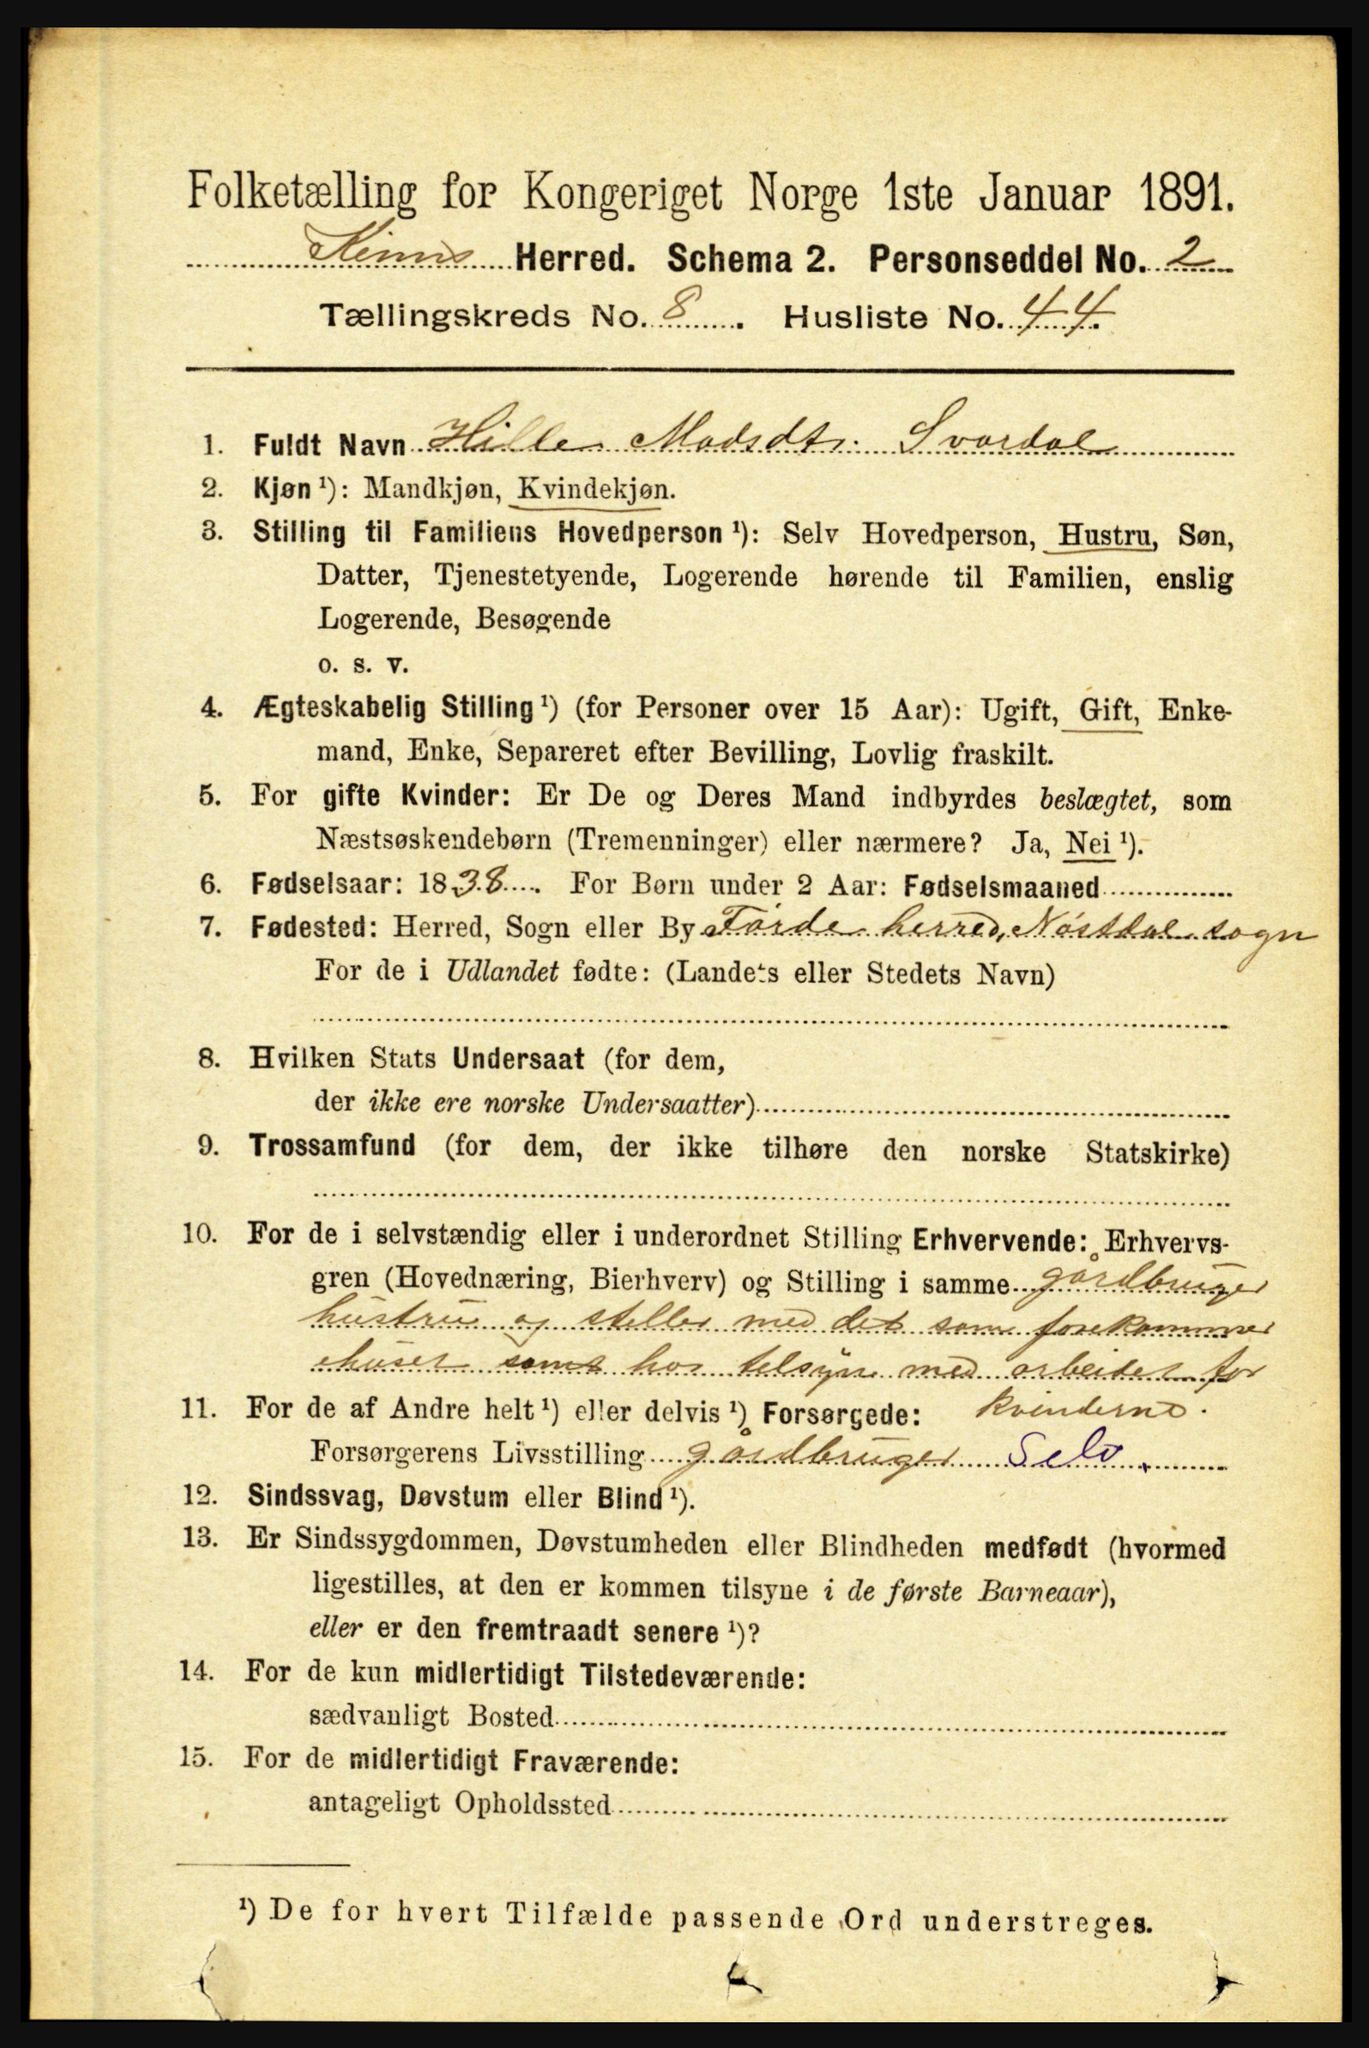 Folketælling for Kongeriget Norge 1ste Januar 1891.
Kinns Herred. Schema 2. Personseddel No. 2
Tællingskreds No. 8. Husliste No. 44.
1. Fuldt Navn Hille Madsdtr. Svardal
2. Kjøn ¹): Mandkjøn, Kvindekjøn.
3. Stilling til Familiens Hovedperson ¹): Selv Hovedperson, Hustru, Søn,
Datter, Tjenestetyende, Logerende hørende til Familien, enslig
Logerende, Besøgende
o. s. v.
4. Ægteskabelig Stilling ¹) (for Personer over 15 Aar): Ugift, Gift, Enke-
mand, Enke, Separeret efter Bevilling, Lovlig fraskilt.
5. For gifte Kvinder: Er De og Deres Mand indbyrdes beslægtet, som
Næstsøskendebørn (Tremenninger) eller nærmere? Ja, Nei ¹).
6. Fødselsaar: 1838. For Børn under 2 Aar: Fødselsmaaned
7. Fødested: Herred, Sogn eller By Førde herred, Nøstdal sogn
For de i Udlandet fødte: (Landets eller Stedets Navn)
8. Hvilken Stats Undersaat (for dem,
der ikke ere norske Undersaatter)
9. Trossamfund (for dem, der ikke tilhøre den norske Statskirke)
10. For de i selvstændig eller i underordnet Stilling Erhvervende: Erhvervs-
gren (Hovednæring, Bierhverv) og Stilling i samme gårdbruger
hustru og steller med det som forekommer
ihuset samt har telsyn med arbeidet for
11. For de af Andre helt ¹) eller delvis ¹) Forsørgede: kvinderne.
Forsørgerens Livsstilling gårdbruger Selv.
12. Sindssvag, Døvstum eller Blind ¹).
13. Er Sindssygdommen, Døvstumheden eller Blindheden medfødt (hvormed
ligestilles, at den er kommen tilsyne i de første Barneaar),
eller er den fremtraadt senere ¹)?
14. For de kun midlertidigt Tilstedeværende:
sædvanligt Bosted
15. For de midlertidigt Fraværende:
antageligt Opholdssted
¹) De for hvert Tilfælde passende Ord understreges.